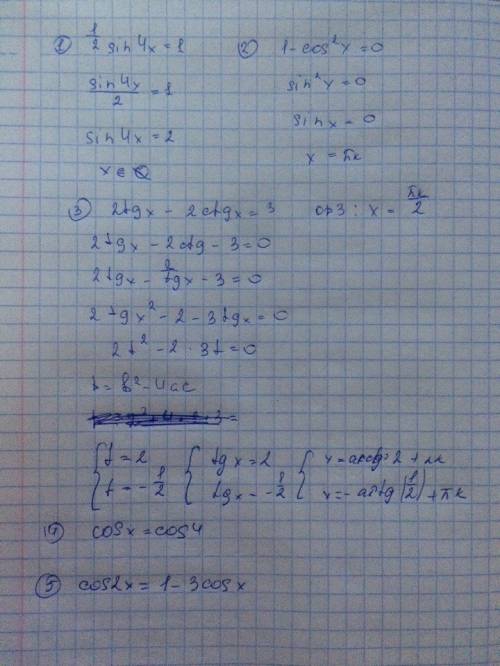 ① 1/2 sin4x = 1
sin4x/2 = 1
sin4x = 2
x ∈ ∅
② 1 - cos²x = 0
sin²x = 0
sin x = 0
x = πк
③ 2tgx - 2ctgx = 3 одз : x = πк/2
2tgx - 2ctg - 3 = 0
2tgx - 2/tgx - 3 = 0
2tgx² - 2 - 3tgx = 0
2t² - 2 · 3t = 0
D = b² - 4ac
{ t = 2 { tgx = 2 { x = arctg 2 + πк
{ t = -1/2 { tgx = -1/2 { x = -arctg(1/2) + πк
④ cosx = cos4
⑤ cos2x = 1 - 3cosx